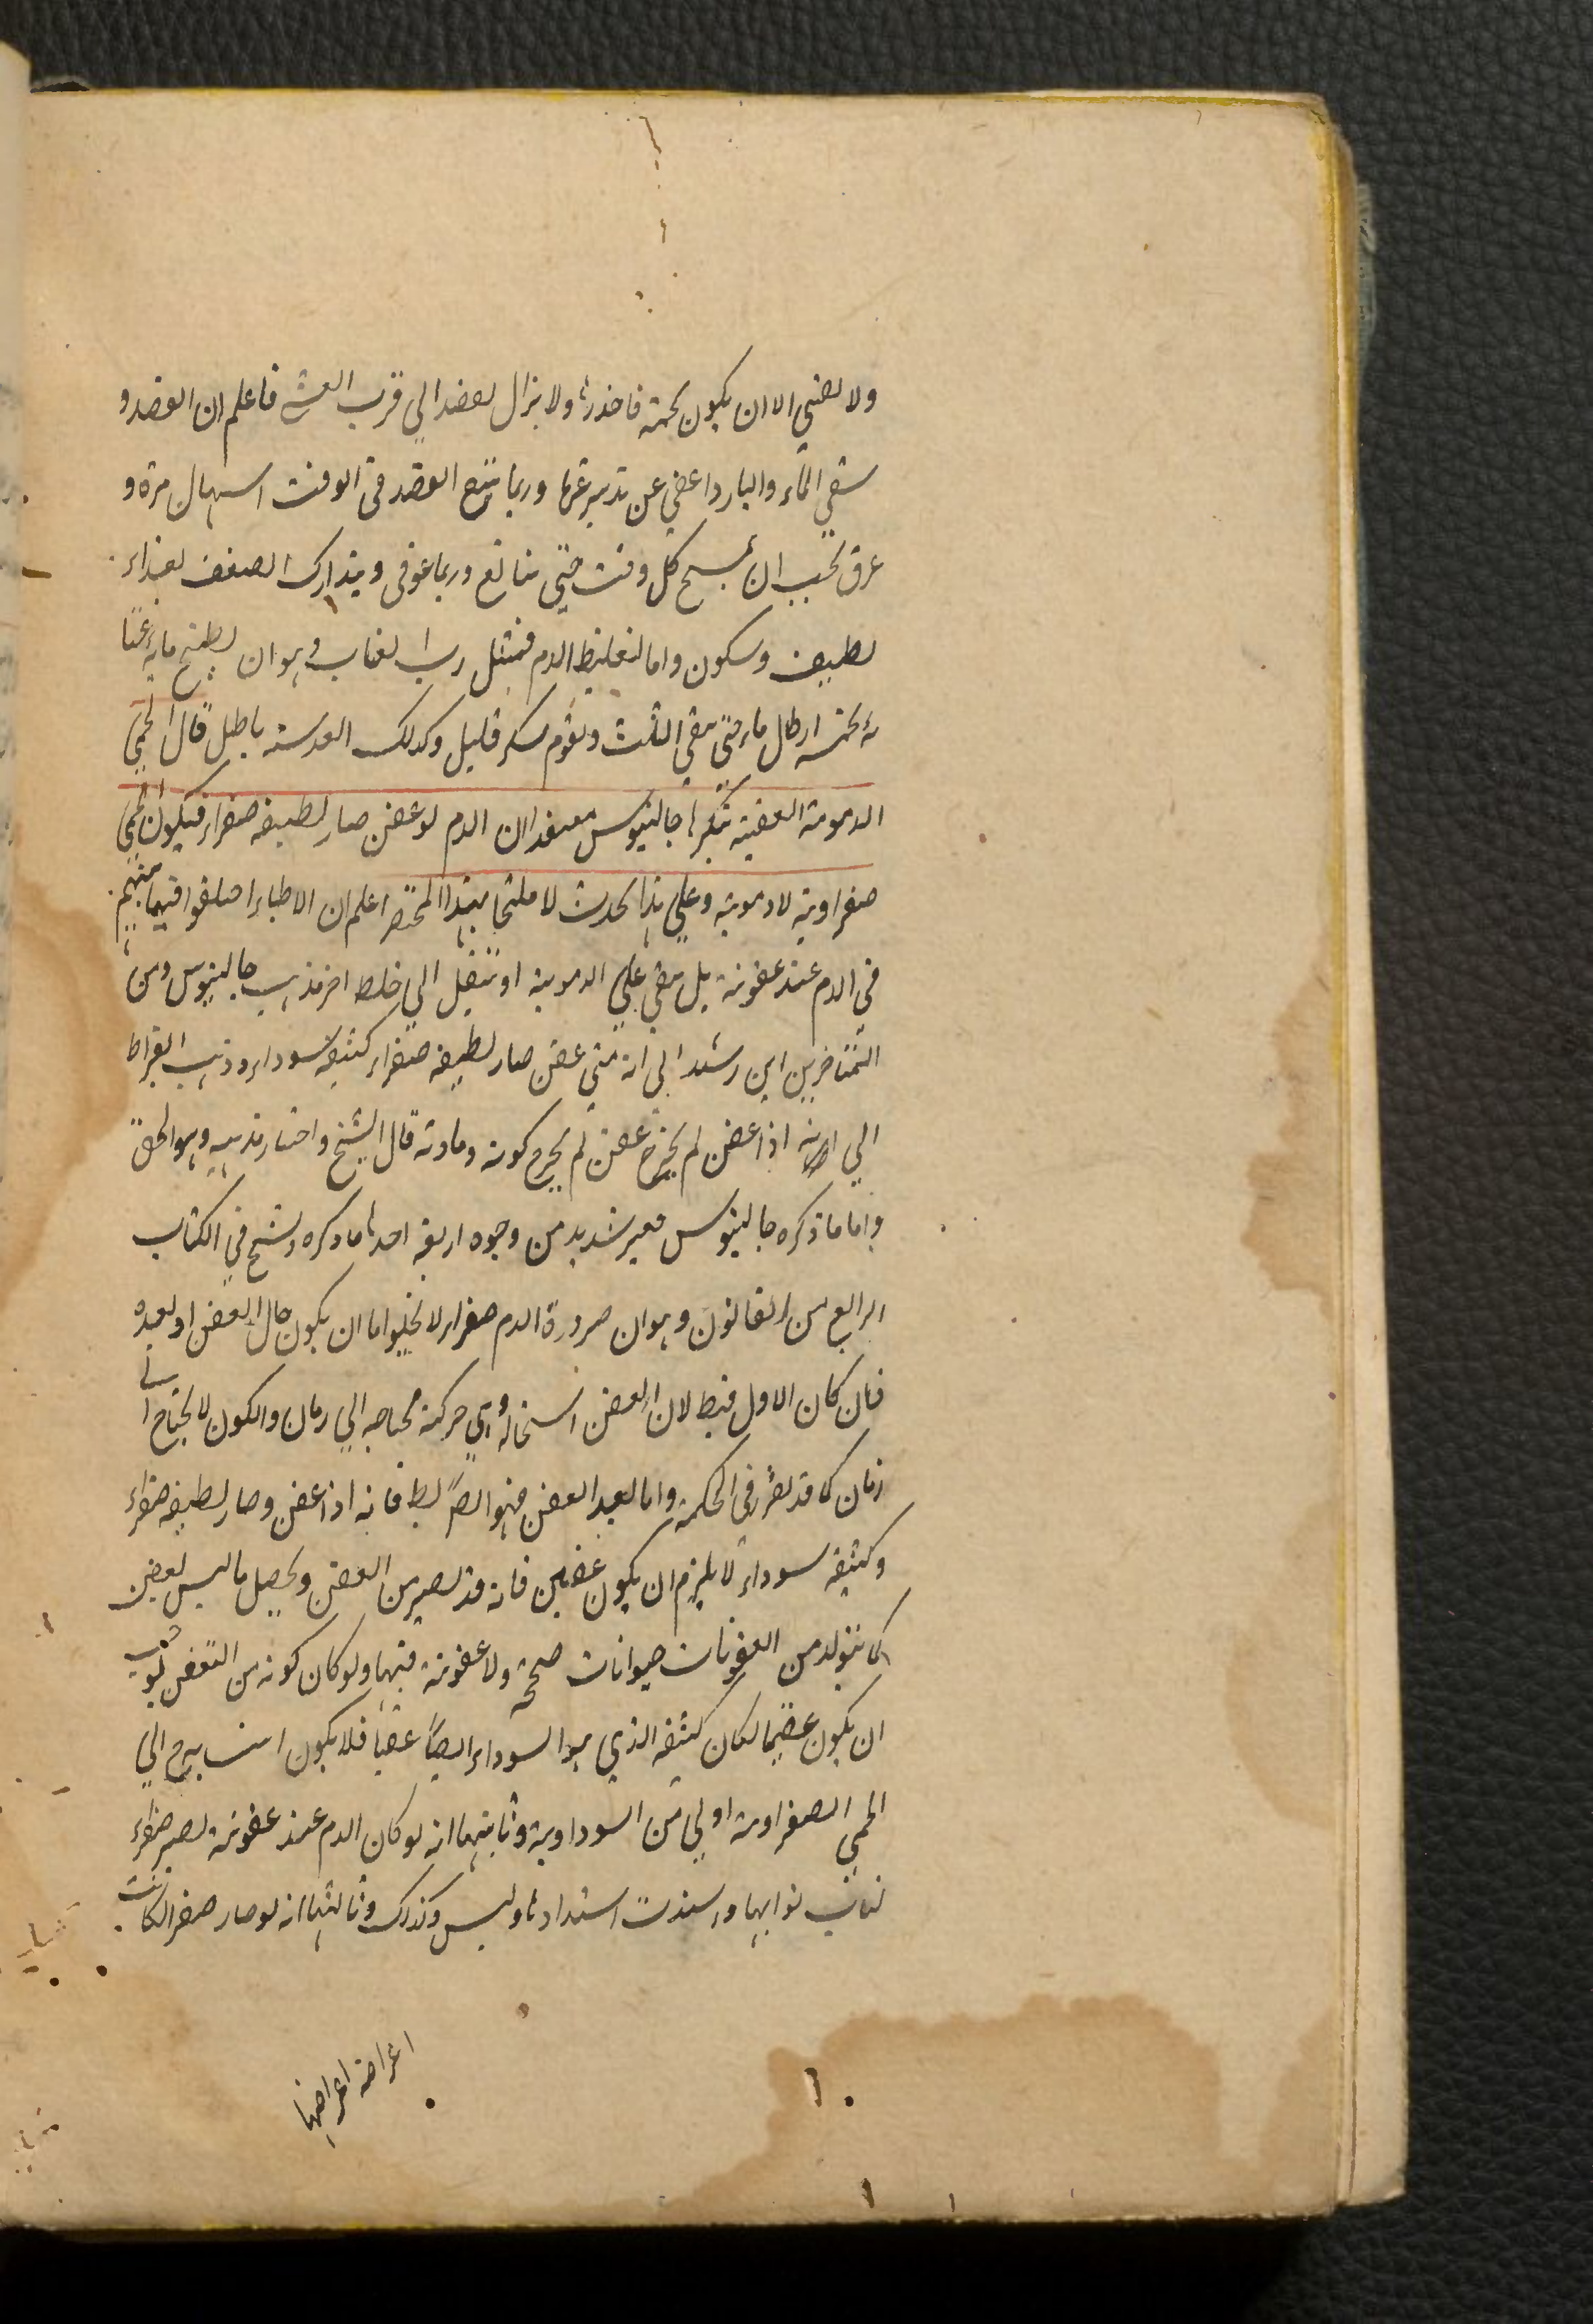 ولا يغني الا ان يكون تخمة فاحذرها ولا يزال يفصد الي قرب الغشي فاعلم ان الفصد و
سقي الماء والبارد اغني عن تدبير غيرها وربما يتبع الفصد في الوقت اسهال مرة و
عرق تحب ان يمسح كل وقت حتي يتابع وربما عوفي ويتدارك الضعف بغذاء
لطيف وسكون واما لتغليظ الدم فمثل رب العناب وهو ان يطبخ مائة عنا
بة بخمسة ارطال ماء حتي يبقي الثلث ويقوم بسكر قليل وكذلك العدسية باطل قال الحمي
الدموية العفنية ينكرها جالينوس معتقدا ان الدم لو عفن صار لطيفه صفراء فيكون الحمي
صفراوية لا دموية وعلي هذا بحدث لا هذا المختصر اعلم ان الاطباء اختلفوا فيما بينهم
في الدم عند عفونة بل يبقي علي الدموية او ينتقل الي خلط اخر مذهب جالينوس ومن
المتاخرين ابن رشد الي انه متي عفن صار لطيفه صفراء كثيفه سوداء وذهب ابقراط
الي انه اذا عفن لم يخرج عفن لم يخرج كونه وماديه قال الشيخ واختار مذهبه وهو الحق
واما ما ذكره جالينوس فغير شديد من وجوه اربعة احدها ما ذكره الشيخ في الكتاب
الرابع من القانون وهو ان صرورة الدم صفراء لا يخلوا اما ان يكون حال العفن او بعده
فان كان الاول فبط لان العفن استحالة وهي حركة محتاجه الي زمان والكون لا يحتاج الي
زمان كما قد تقرر في الحكمة واما بعد العفن فهو ايضاً بط فانه اذا عفن وصار لطيفه صفراء
وكثيفه سوداء لا يلزم ان يكون عفنين فانه قد يصير من العفن ويحصل ما ليس بعفن
كما يتولد من العفونات حيوانات صحيحة ولا عفونة فيها ولو كان كونه من العفن يوجب
ان يكون عفنا لكان كثيفه الذي هو السوداء ايضاً عفنا فلا يكون انسابه الي
الحمي الصفراوية اولي من السوداوية وثانيها انه لو كان الدم عند عفونة يصير صفراء
لنابت نوايبها واستدت اشتدادها وليس كذلك وثالثها انه لو صار صفرا لكانت
اعراضه اعراضها